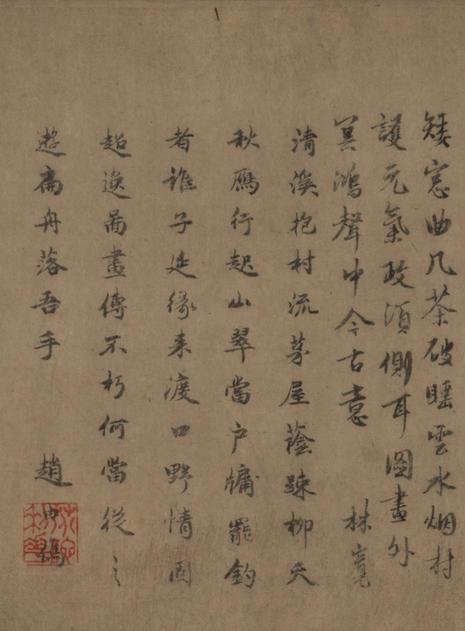 矮窓曲几茶破睡雲水烟村
護元氣政須側耳圖畫外
冥鴻聲中今古意 林寛
清溪抱村流茅屋蔭踈柳天
秋鴈行起山翠當户牖罷釣
者誰子延縁来渡口野情固
超逸啚畫傳不朽何當從之
遊扁舟落吾手 趙